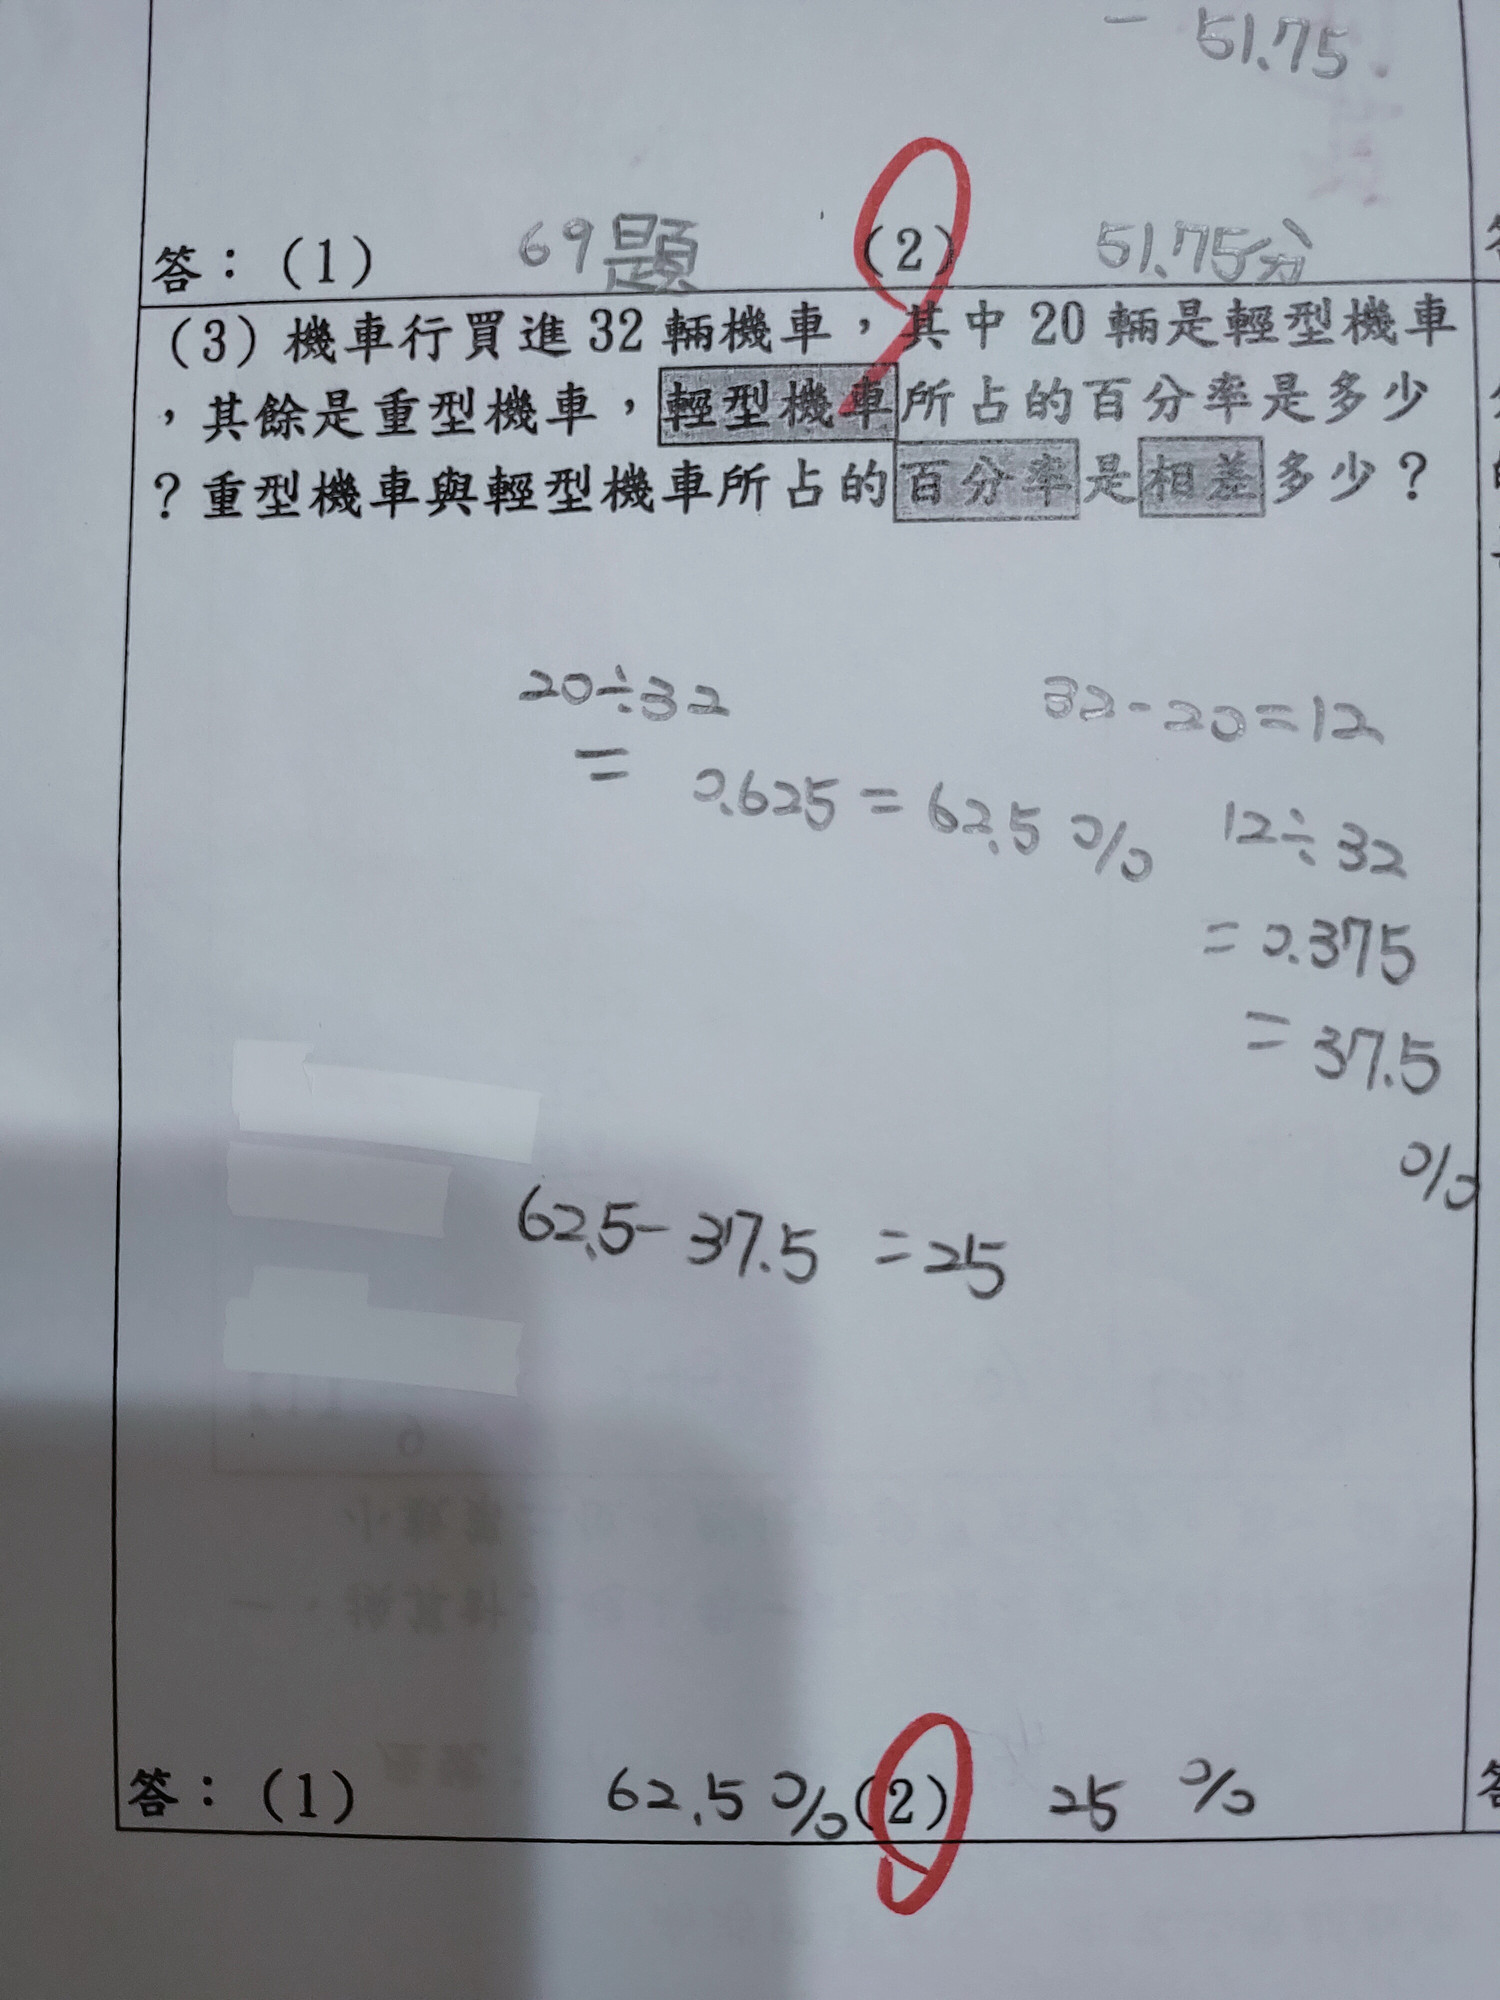 - 51.75
答：(1) 69題 (2) 51.75分
(3) 機車行買進 32 輛機車，其中 20 輛是輕型機車
，其餘是重型機車，輕型機車所占的百分率是多少
？重型機車與輕型機車所占的百分率是相差多少？
20÷32
= 0.625 = 62.5 %
32-20=12
12÷32
= 0.375
= 37.5
%
62.5-37.5 =25
答：(1) 62.5 % (2) 25 %